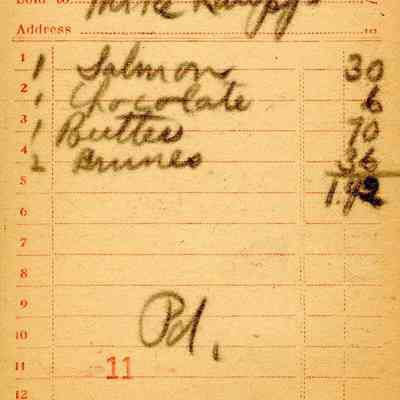 Sold to
Mike
Address
1 1 Salmon 30
2 1 Chocolate 6
3 1 Butter 70
4 2 Prunes 36
5 1.42
6
7
8
9
10 Pd.
11 11
12